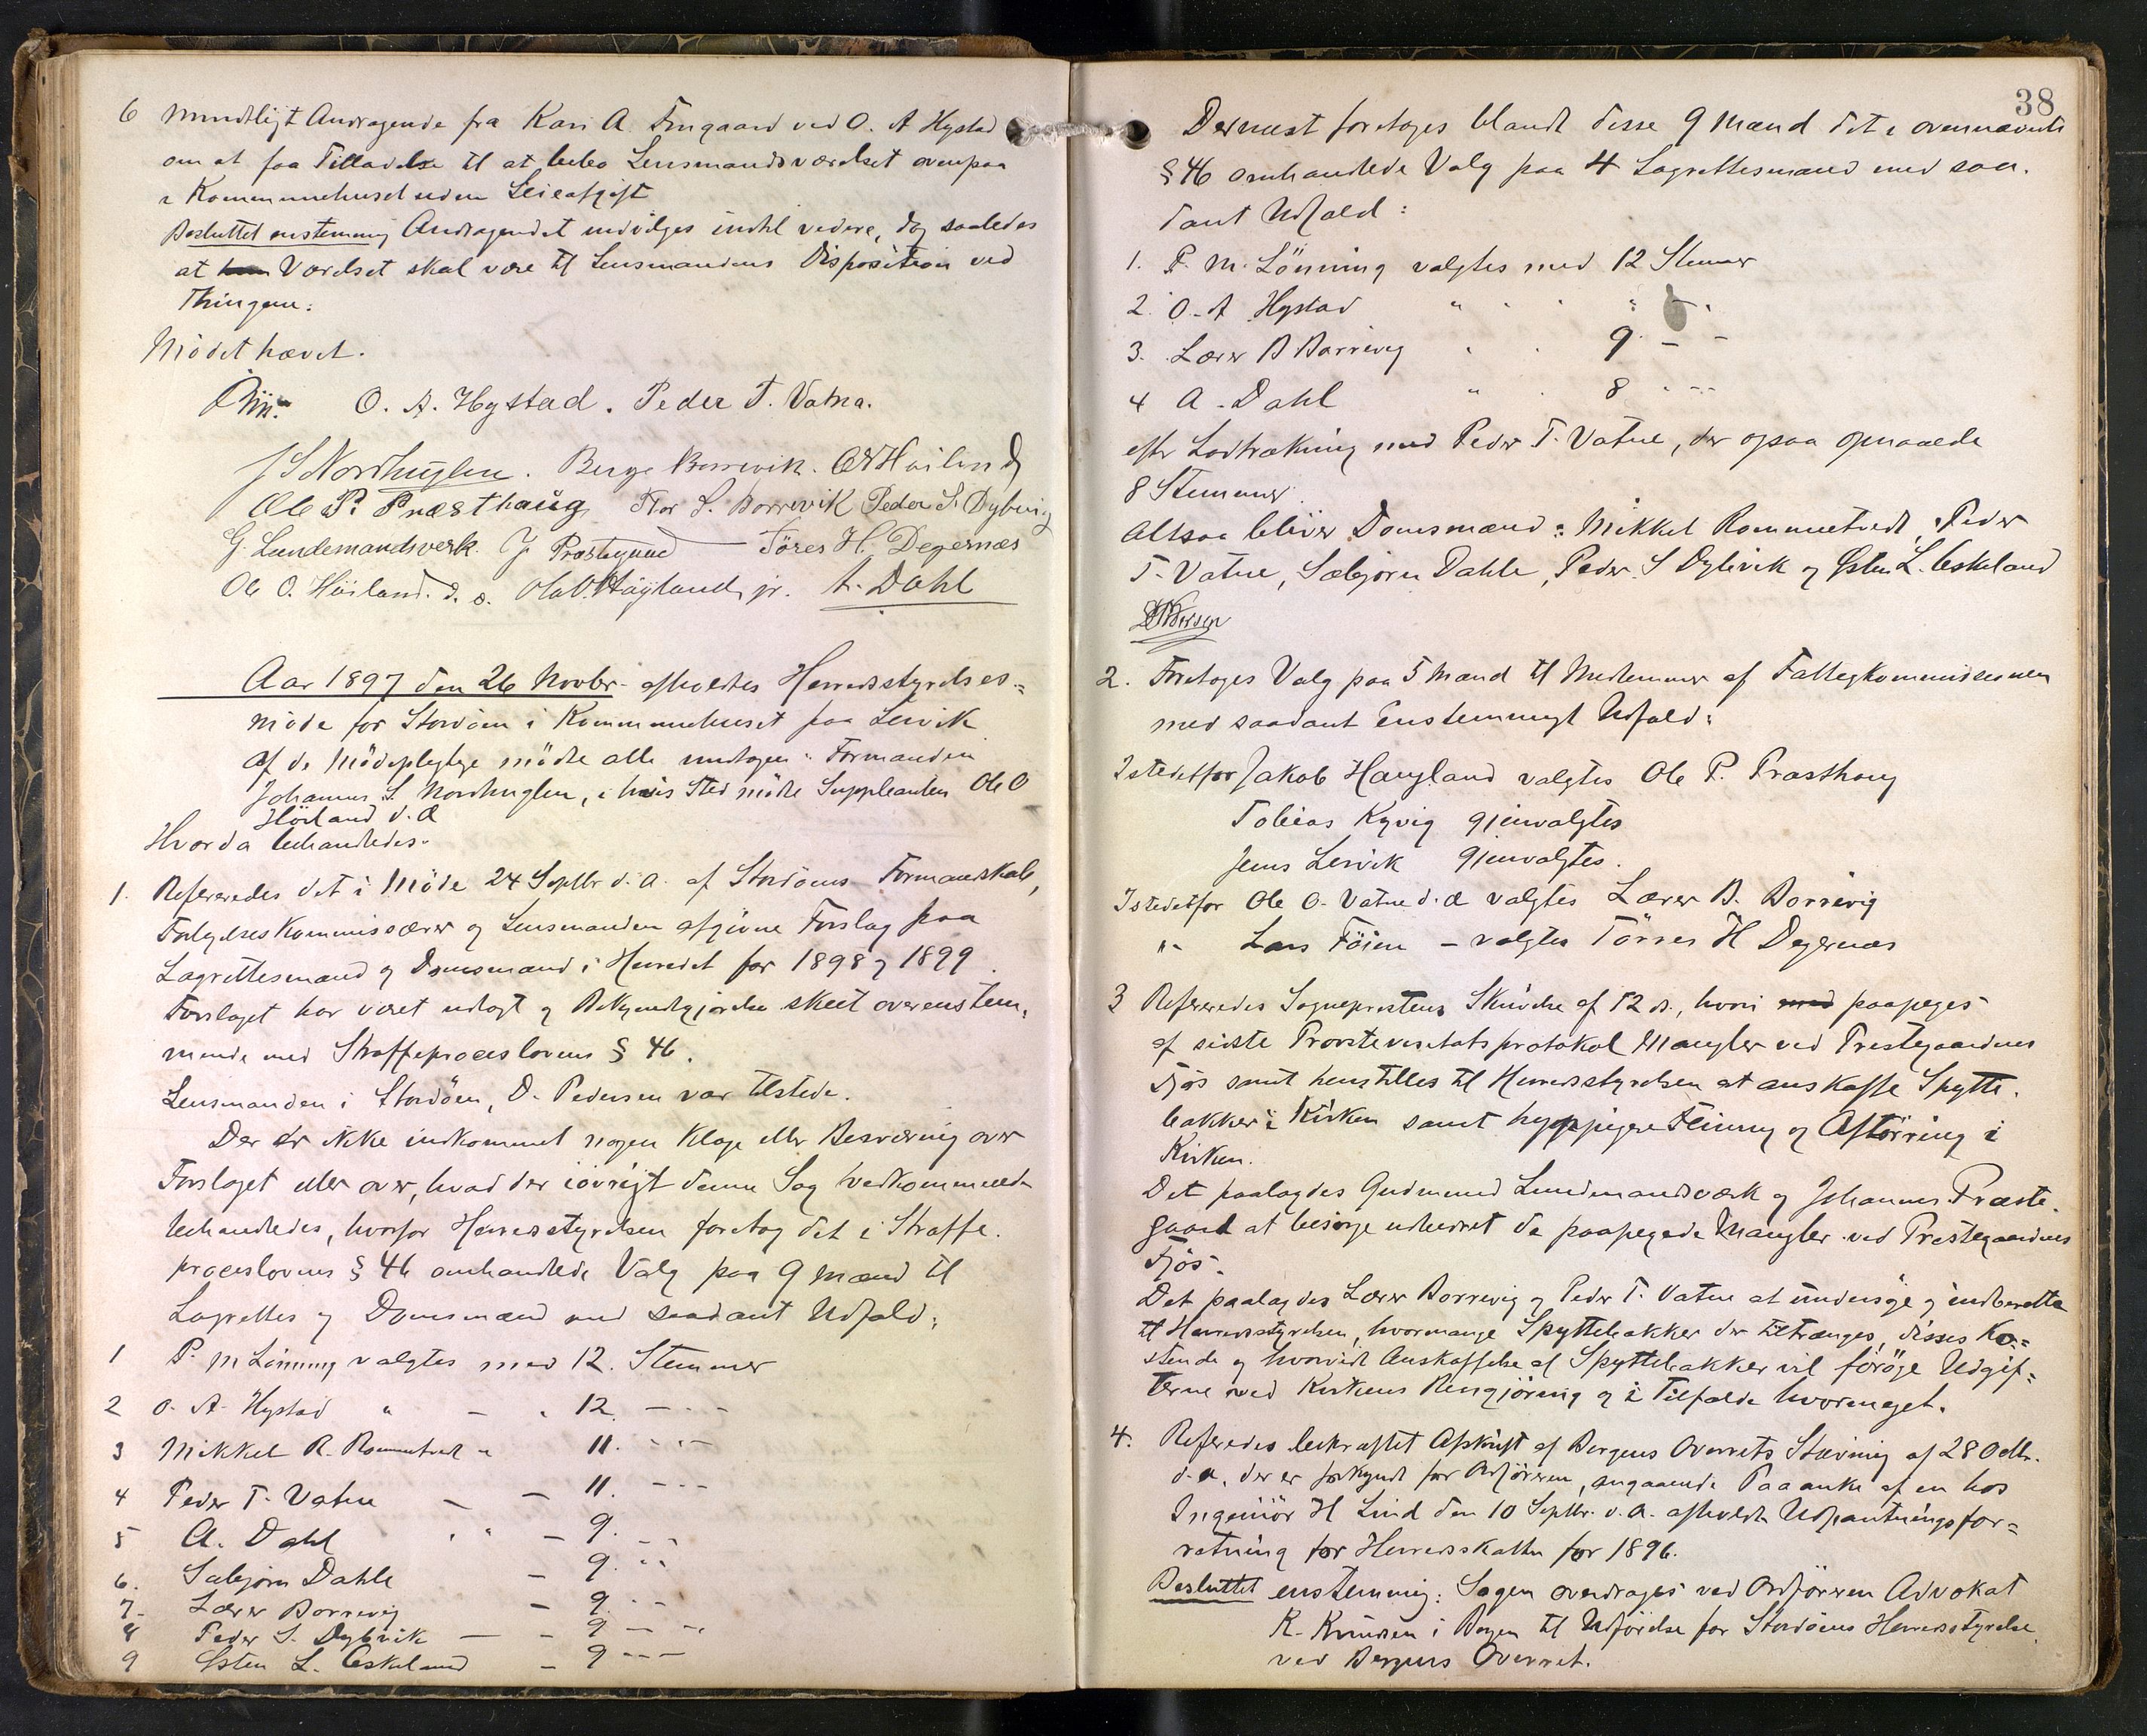 6 Mundtligt Andragende fra Kari A. Tingaard ved O. A Hystad
om at faa Tilladelse til at bebo Lensmandsværelset ovenpaa
i Kommunehuset uden Leieafgift
Besluttet enstemmig Andragendet indvilges indtil videre, dog saaledes
at Værelset skal være til Lensmandens Disposition ved
Thingene.
Mödet hævet.
O. A. Hystad. Peder T. Vatna.
J S Nordhuglen. Berge Borrevik. O Höiland
Ole P. Præsthaug Thor L. Borrevik Peder S. Dybvig
G. Lundemandsverk. J. Præstegaard Törres H. Degernæs
Ole O. Höiland. d. e. Ola O. Höyland jr. A. Dahl
Aar 1897 den 26 Novbr. afholdtes Herredsstyrelses=
möde for Stordöen i Kommunehuset paa Lervik
Af de Mödepligtige mödte alle undtagen Formanden
Johannes S. Nordhuglen, i hvis Sted mödte Suppleanten Ole O
Höiland d. æ
Hvorda behandledes.
1. Refereredes det i Möde 24 Septbr d. A. af Stordöens Formandskab,
Forligelseskommissærer og Lensmanden afgivne Forslag paa
Lagrettesmænd og Domsmænd i Herredet for 1898 og 1899.
Forslaget har været udlagt og Bekjendtgjörelse skeet overenstem,
mende med Straffeproceslovens § 46.
Lensmanden i Stordöen, O. Pedersen var tilstede.
Der er ikke indkommet nogen Klage eller Besværing over
Forslaget eller over, hvad der iövrigt denne Sag vedkommende
behandledes, hvorfor Herredsstyrelsen foretog det i Straffe.
proceslovens § 46 omhandlede Valg paa 9 Mænd til
Lagrettes og Domsmænd med saadant Udfald:
1 P. M Lönning valgtes med 12. Stemmer
2 O. A. Hystad " - " 12. - - -
3 Mikkel R. Rommetvedt " 11. - - -
4 Peder T. Vatne - - 11. - - -
5 A. Dahl " " - 9. - -
6. Sæbjörn Dahle - 9. - -
7- Lærer Borrevig - 9. - -
8 Peder S. Dybvik - - 9 - -
9 Östen L. Eskeland - 9 - - -
38
Dernæst foretoges blandt disse 9 Mænd det i ovennævnte
§ 46 omhandlede Valg paa 4 Lagrettesmænd med saa.
dant Udfald:
1. P. M. Lönning valgtes med 12 Stemmer
2. O. A Hystad " " " " - "
3. Lærer B Borrevig " " 9. - -
4 A. Dahl " " 8 - - -
efter Lodtrækning med Peder T. Vatne, der ogsaa opnaaede
8 Stemmer.
Altsaa bliver Domsmænd: Mikkel Rommetvedt, Peder
T. Vatne, Sæbjörn Dahle, Peder S Dybvik og Östen L. Eskeland
2. Foretoges Valg paa 5 Mænd til Medlemmer af Fattigkommissionen
med saadant Enstemmigt Udfald:
Istedetfor Jakob Haugland valgtes Ole P. Præsthaug
Tobias Kyvig gjenvalgtes
Jens Lervik gjenvalgtes.
Istedetfor Ole O. Vatne d. æ valgtes Lærer B. Borrevig
" - Lars Föien - valgtes Törres H Degernæs
3 Refereredes Sogneprestens Skrivelse af 12 ds., hvori paapeges
af sidste Provstevisitatsprotokol Mangler ved Prestegaardens
Fjös samt henstilles til Herredsstyrelsen at anskaffe Spytte.
bakker i Kirken samt hyppigere Feining og Aftörring i
Kirken.
Det paalagdes Gudmund Lundemandsværk og Johannes Præste.
gaard at besörge udbedret de paapegede Mangler ved Prestegaardens
Fjös.
Det paalagdes Lærer Borrevig og Peder T. Vatne at undersöge og indberette
til Herredsstyrelsen, hvormange Spyttebakker der tiltrænges, disses Ko=
stende og hvorvidt Anskaffelse af Spyttebakker vil foröge Udgif=
terne ved Kirkens Rengjöring og i Tilfælde hvormeget.
4. Referedes bekræftet Afskrift af Bergens Overrets Stævning af 28 Octbr.
d. a. der er forkyndt for Ordföreren, angaaende Paaanke af en hos
Ingeniör H Lind den 10 Septbr. d. A. afholdt Udpantningsfor=
retning for Herredsskatten for 1896.
Besluttet enstemmig: Sagen overdrages ved Ordföreren Advokat
K. Knudsen i Bergen til Udförelse for Stordöens Herredsstyrelse
ved Bergens Overret.